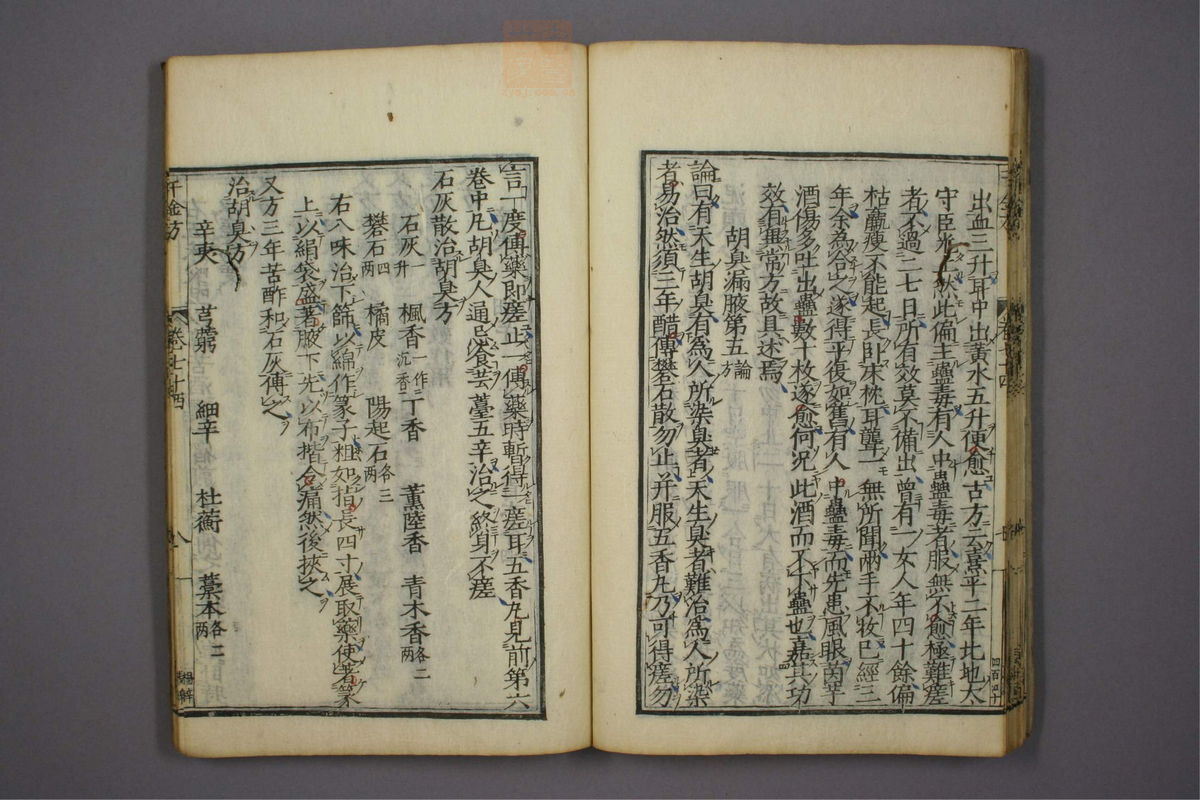 出血三升耳中出黃水五升便愈古方云熹平二年北地太
守臣光然此偏主蠱毒有人中蠱毒者服無不愈極難瘥
者不過二七日所有效莫不備出曾有一女人年四十餘偏
枯羸瘦不能起長臥床枕耳聾一無所聞兩手不收已經三
年余為合之遂得平復如舊有人中蠱毒而先患風眼茵芋
酒傷多吐出蠱數十枚遂愈何況此酒而不下蠱也嘉其功
效有異常方故具述焉
胡臭漏腋第五論方
論曰有天生胡臭有為人所染臭者天生臭者難治為人所染
者易治然須三年醋傅礬石散勿止并服五香丸乃可得瘥勿
言一度傅藥即瘥止一傅藥時暫得一瘥耳五香丸見前第六
卷中凡胡臭人通忌食芸薹五辛治之終身不瘥
石灰散治胡臭方
石灰一升 楓香一作沉香 丁香 薰陸香 青木香各二兩
礬石四兩 橘皮 陽起石各三兩
右八味治下篩以綿作篆子粗如指長四寸展取藥使著篆
上以絹袋盛著腋下先以布揩令痛然後挾之
又方三年苦酢和石灰傅之
治胡臭方
辛夷 芎藭 細辛 杜蘅 藁本各二兩
千金方
卷七十四
八